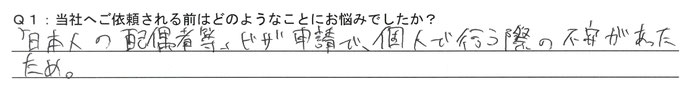 Q1:当社へご依頼される前はどのようなことにお悩みでしたか?
「日本人の配偶者等」ビザ申請で、個人で行う際の不安があった
ため。